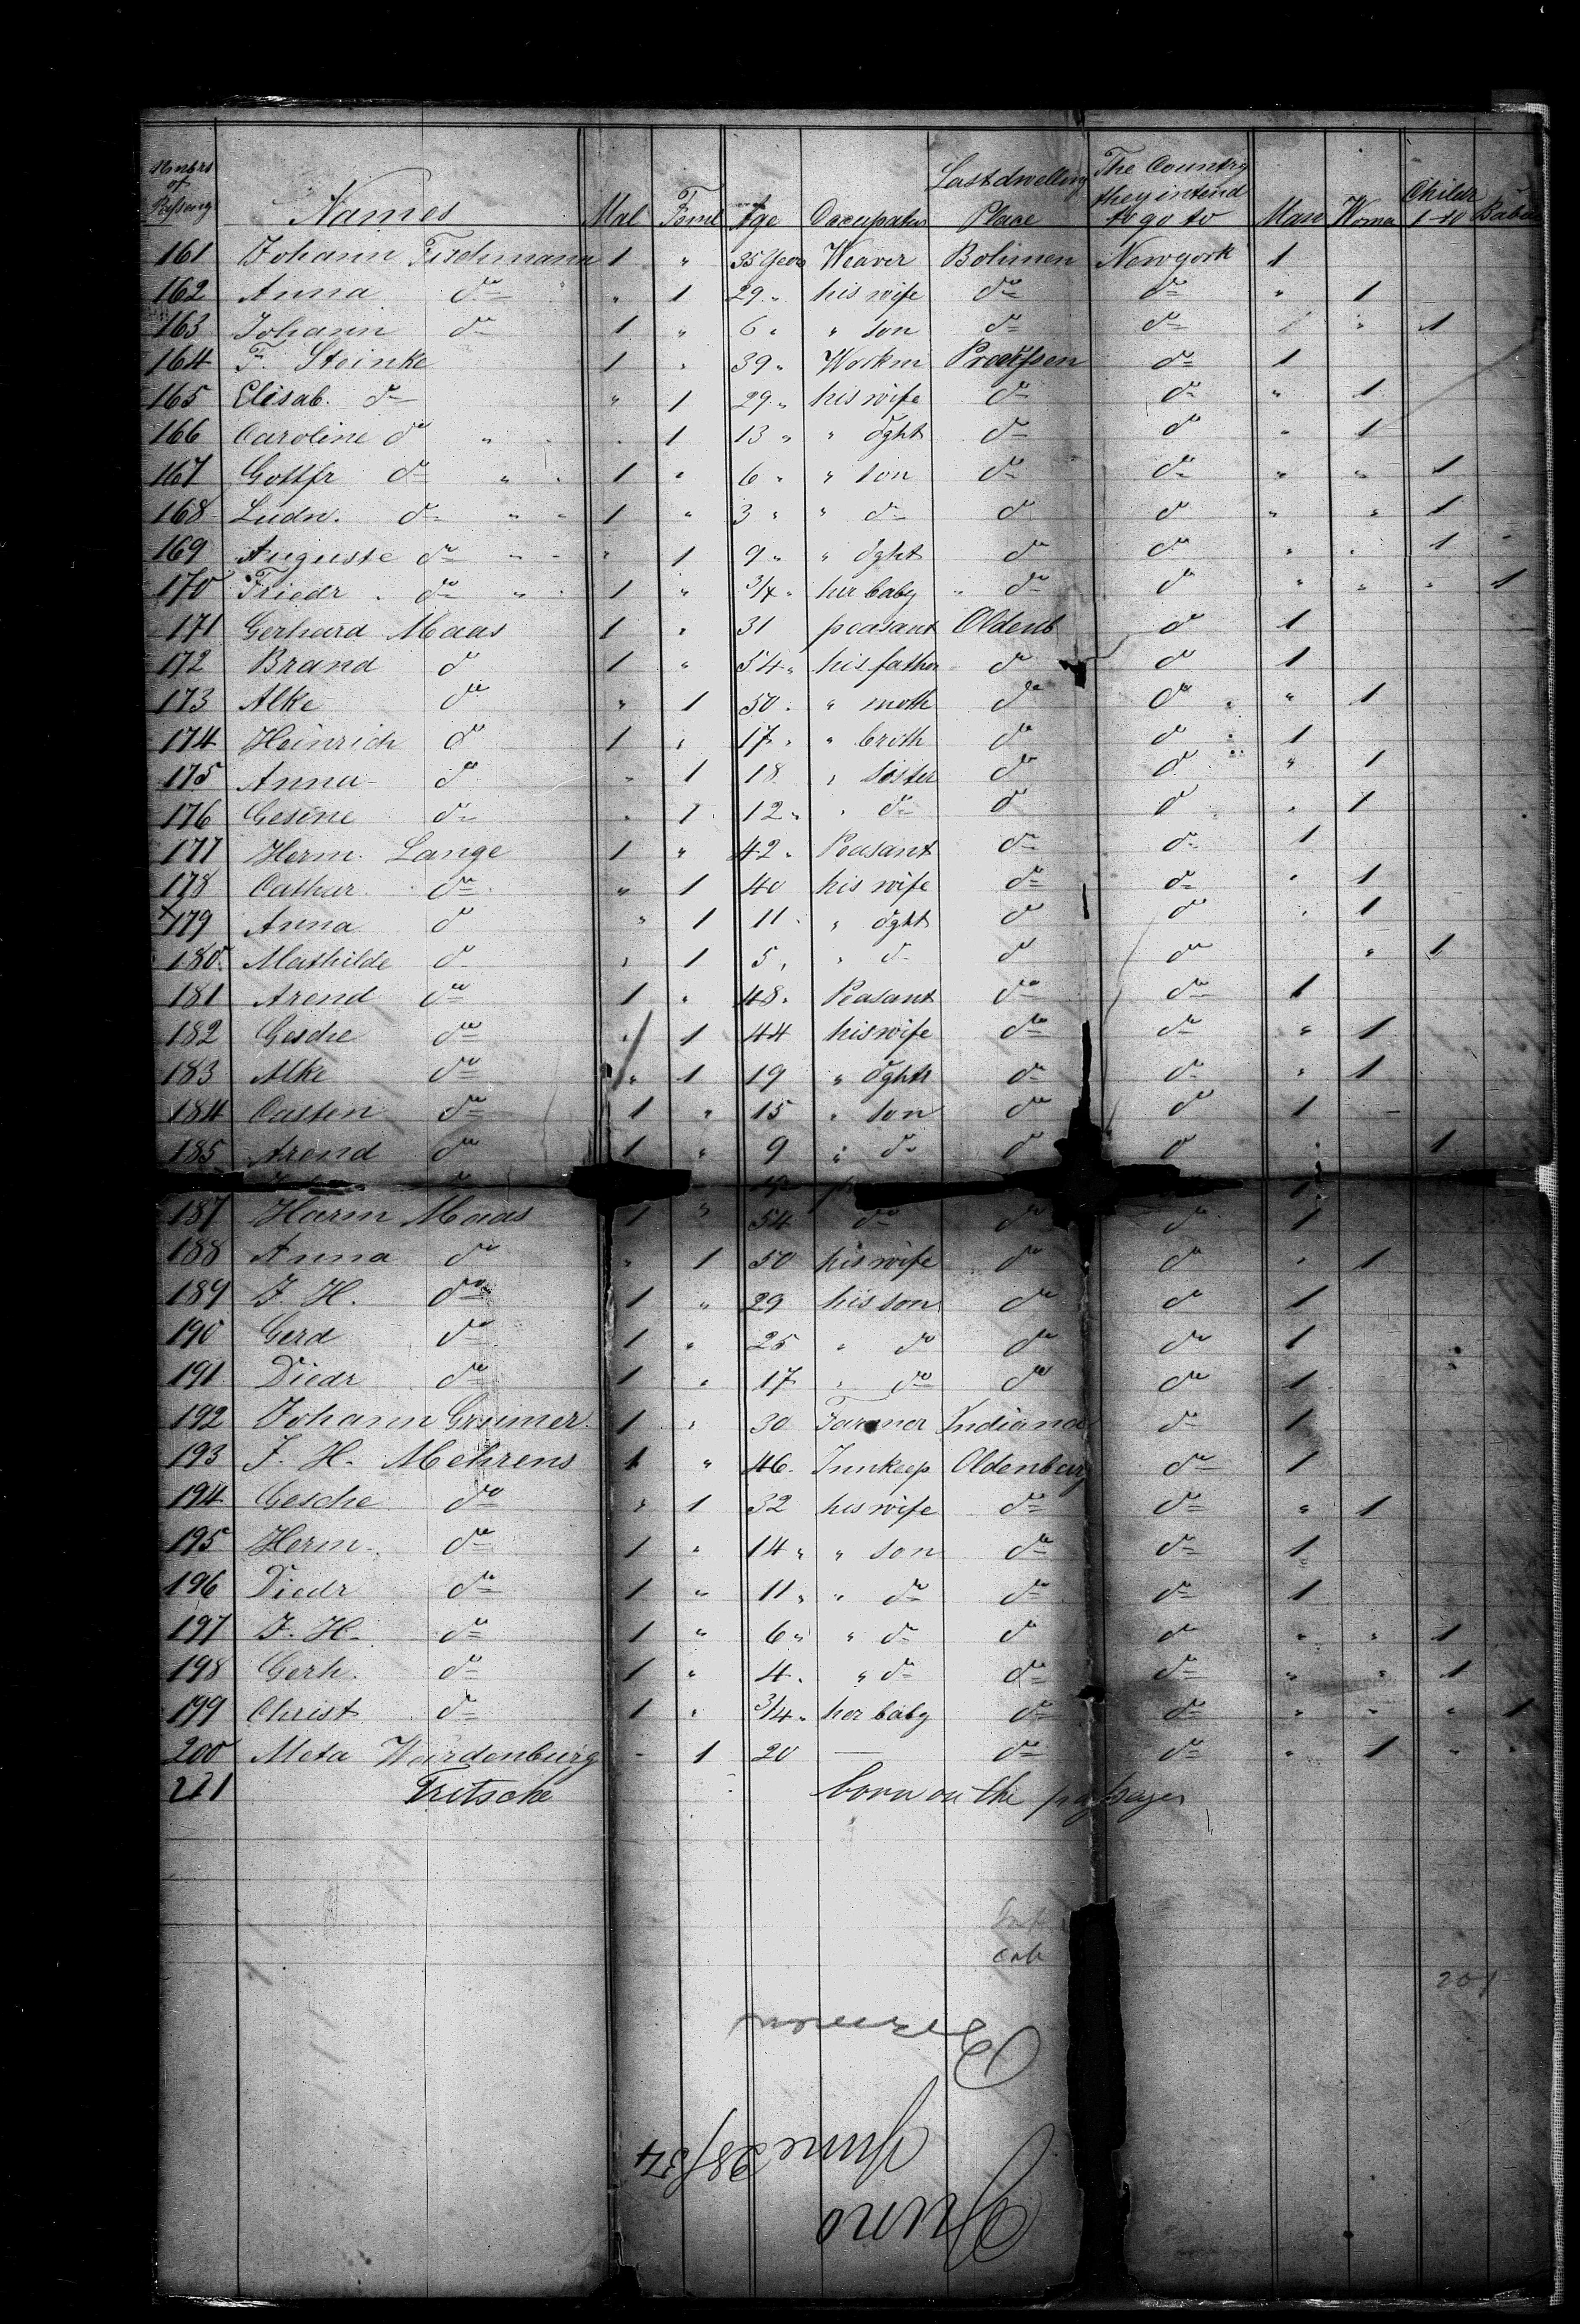 Numbrs of Passeng Names Mal Feml Age Occupation Last dwelling Place The Country they intend to go to Man Woma Childr 1-10 Babies
161 Johann Fischmann 1 " 35 Years Weaver Bohmen Newyork 1
162 Anna do " 1 29 " his wife do do " 1
163 Johann do 1 " 6 " " son do do " 1
164 F. Steinke 1 " 39 " Workm Preussen do 1
165 Elisab. do " 1 29 " his wife do do " 1
166 Caroline do " " 1 13 " " dght do do " 1
167 Gottfr do " 1 " 6 " " son do do " " 1
168 Ludw. do " " 1 " 3 " " do do do " " 1
169 Auguste do " " 1 9 " " dght do do " " 1
170 Friedr. do " 1 " 3/4 " her baby " do do " " " 1
171 Gerhard Maas 1 " 31 peasant Oldenb do 1
172 Brand do 1 " 54 " his father do do 1
173 Alke do " 1 50 " " moth do do " 1
174 Heinrich do 1 " 17 " " broth do do 1
175 Anna do " 1 18 " sister do do " 1
176 Gesine do " 1 12 " " do do do " 1
177 Herm. Lange 1 " 42 " Peasant do do 1
178 Cathar. do " 1 40 his wife do do " 1
179 Anna do " 1 11 " " dght do do " 1
180 Mathilde do " 1 5 " " do do do " 1
181 Arend do 1 " 48 " Peasant do do 1
182 Gesche do " 1 44 his wife do do " 1
183 Alke do " 1 19 " dght do do " 1
184 Casten do 1 " 15 " son do do 1
185 Arend do 1 " 9 " do do do " 1
187 Harm Maas 1 " 54 do do do 1
188 Anna do " 1 50 his wife do do " 1
189 J. H. do 1 " 29 his son do do 1
190 Gerd do 1 " 25 " do do do 1
191 Diedr do 1 " 17 " do do do 1
192 Johann Grumer 1 " 30 Farmer Indiana do 1
193 J. H. Mehrens 1 " 46 Innkeep Oldenburg do 1
194 Gesche do " 1 32 his wife do do " 1
195 Herm. do 1 " 14 " " son do do 1
196 Diedr do 1 " 11 " " do do do 1
197 J. H. do 1 " 6 " " do do do " " 1
198 Gerh. do 1 " 4 " " do do do " " 1
199 Christ do 1 " 3/4 " her baby do do " " " 1
200 Meta Wardenburg - 1 20 — do do " 1 " "
221 Fritsche born on the passage
201
Bremen
June 28/54
Juno